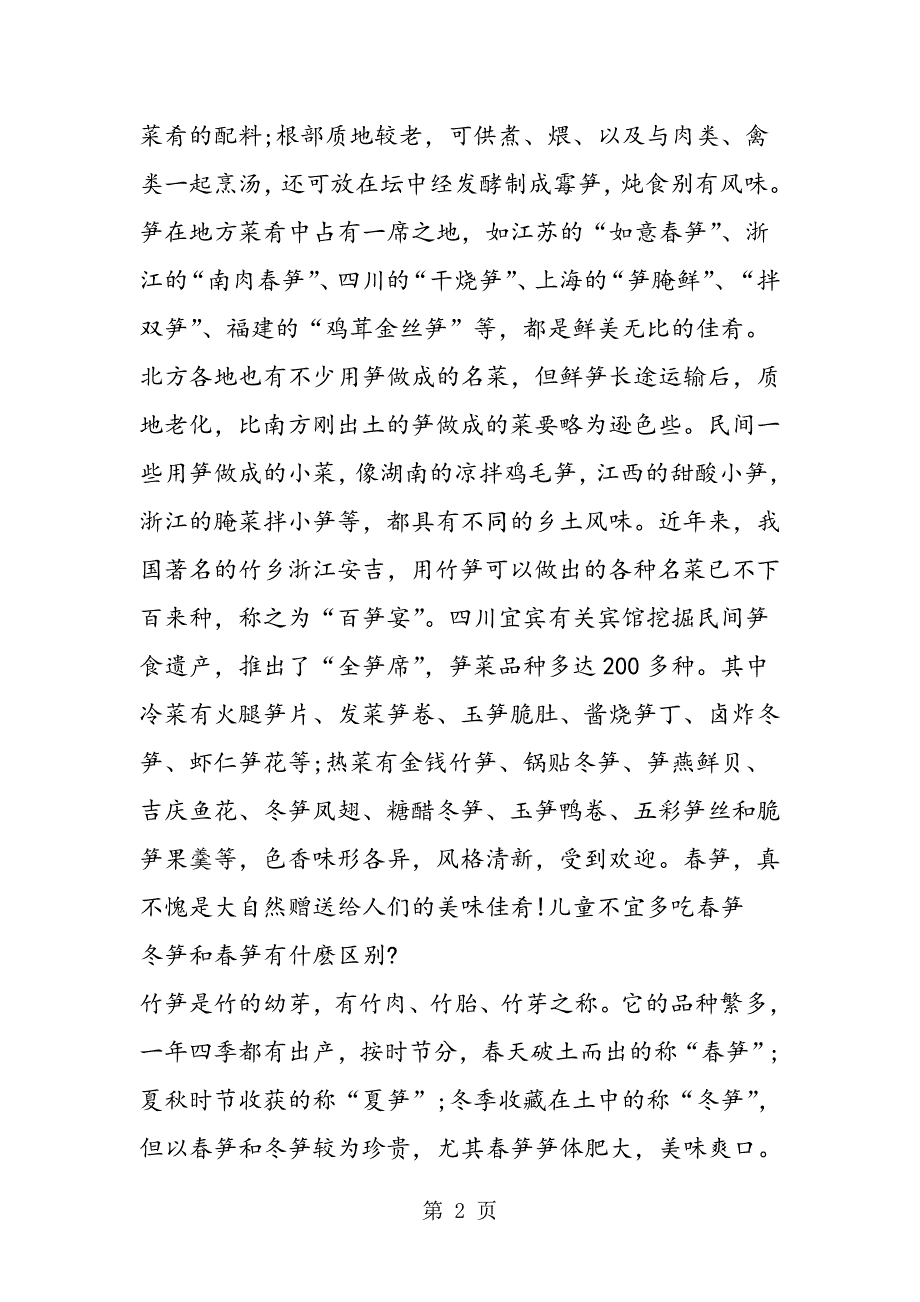 菜肴的配料;根部质地较老，可供煮、煨、以及与肉类、禽
类一起烹汤，还可放在坛中经发酵制成霉笋，炖食别有风味。
笋在地方菜肴中占有一席之地，如江苏的“如意春笋”、浙
江的“南肉春笋”、四川的“干烧笋”、上海的“笋腌鲜”、“拌
双笋”、福建的“鸡茸金丝笋”等，都是鲜美无比的佳肴。
北方各地也有不少用笋做成的名菜，但鲜笋长途运输后，质
地老化，比南方刚出土的笋做成的菜要略为逊色些。民间一
些用笋做成的小菜，像湖南的凉拌鸡毛笋，江西的甜酸小笋，
浙江的腌菜拌小笋等，都具有不同的乡土风味。近年来，我
国著名的竹乡浙江安吉，用竹笋可以做出的各种名菜已不下
百来种，称之为“百笋宴”。四川宜宾有关宾馆挖掘民间笋
食遗产，推出了“全笋席”，笋菜品种多达200多种。其中
冷菜有火腿笋片、发菜笋卷、玉笋脆肚、酱烧笋丁、卤炸冬
笋、虾仁笋花等;热菜有金钱竹笋、锅贴冬笋、笋燕鲜贝、
吉庆鱼花、冬笋凤翅、糖醋冬笋、玉笋鸭卷、五彩笋丝和脆
笋果羹等，色香味形各异，风格清新，受到欢迎。春笋，真
不愧是大自然赠送给人们的美味佳肴!儿童不宜多吃春笋
冬笋和春笋有什麽区别?
竹笋是竹的幼芽，有竹肉、竹胎、竹芽之称。它的品种繁多，
一年四季都有出产，按时节分，春天破土而出的称“春笋”;
夏秋时节收获的称“夏笋”;冬季收藏在土中的称“冬笋”，
但以春笋和冬笋较为珍贵，尤其春笋笋体肥大，美味爽口。
第 2 页